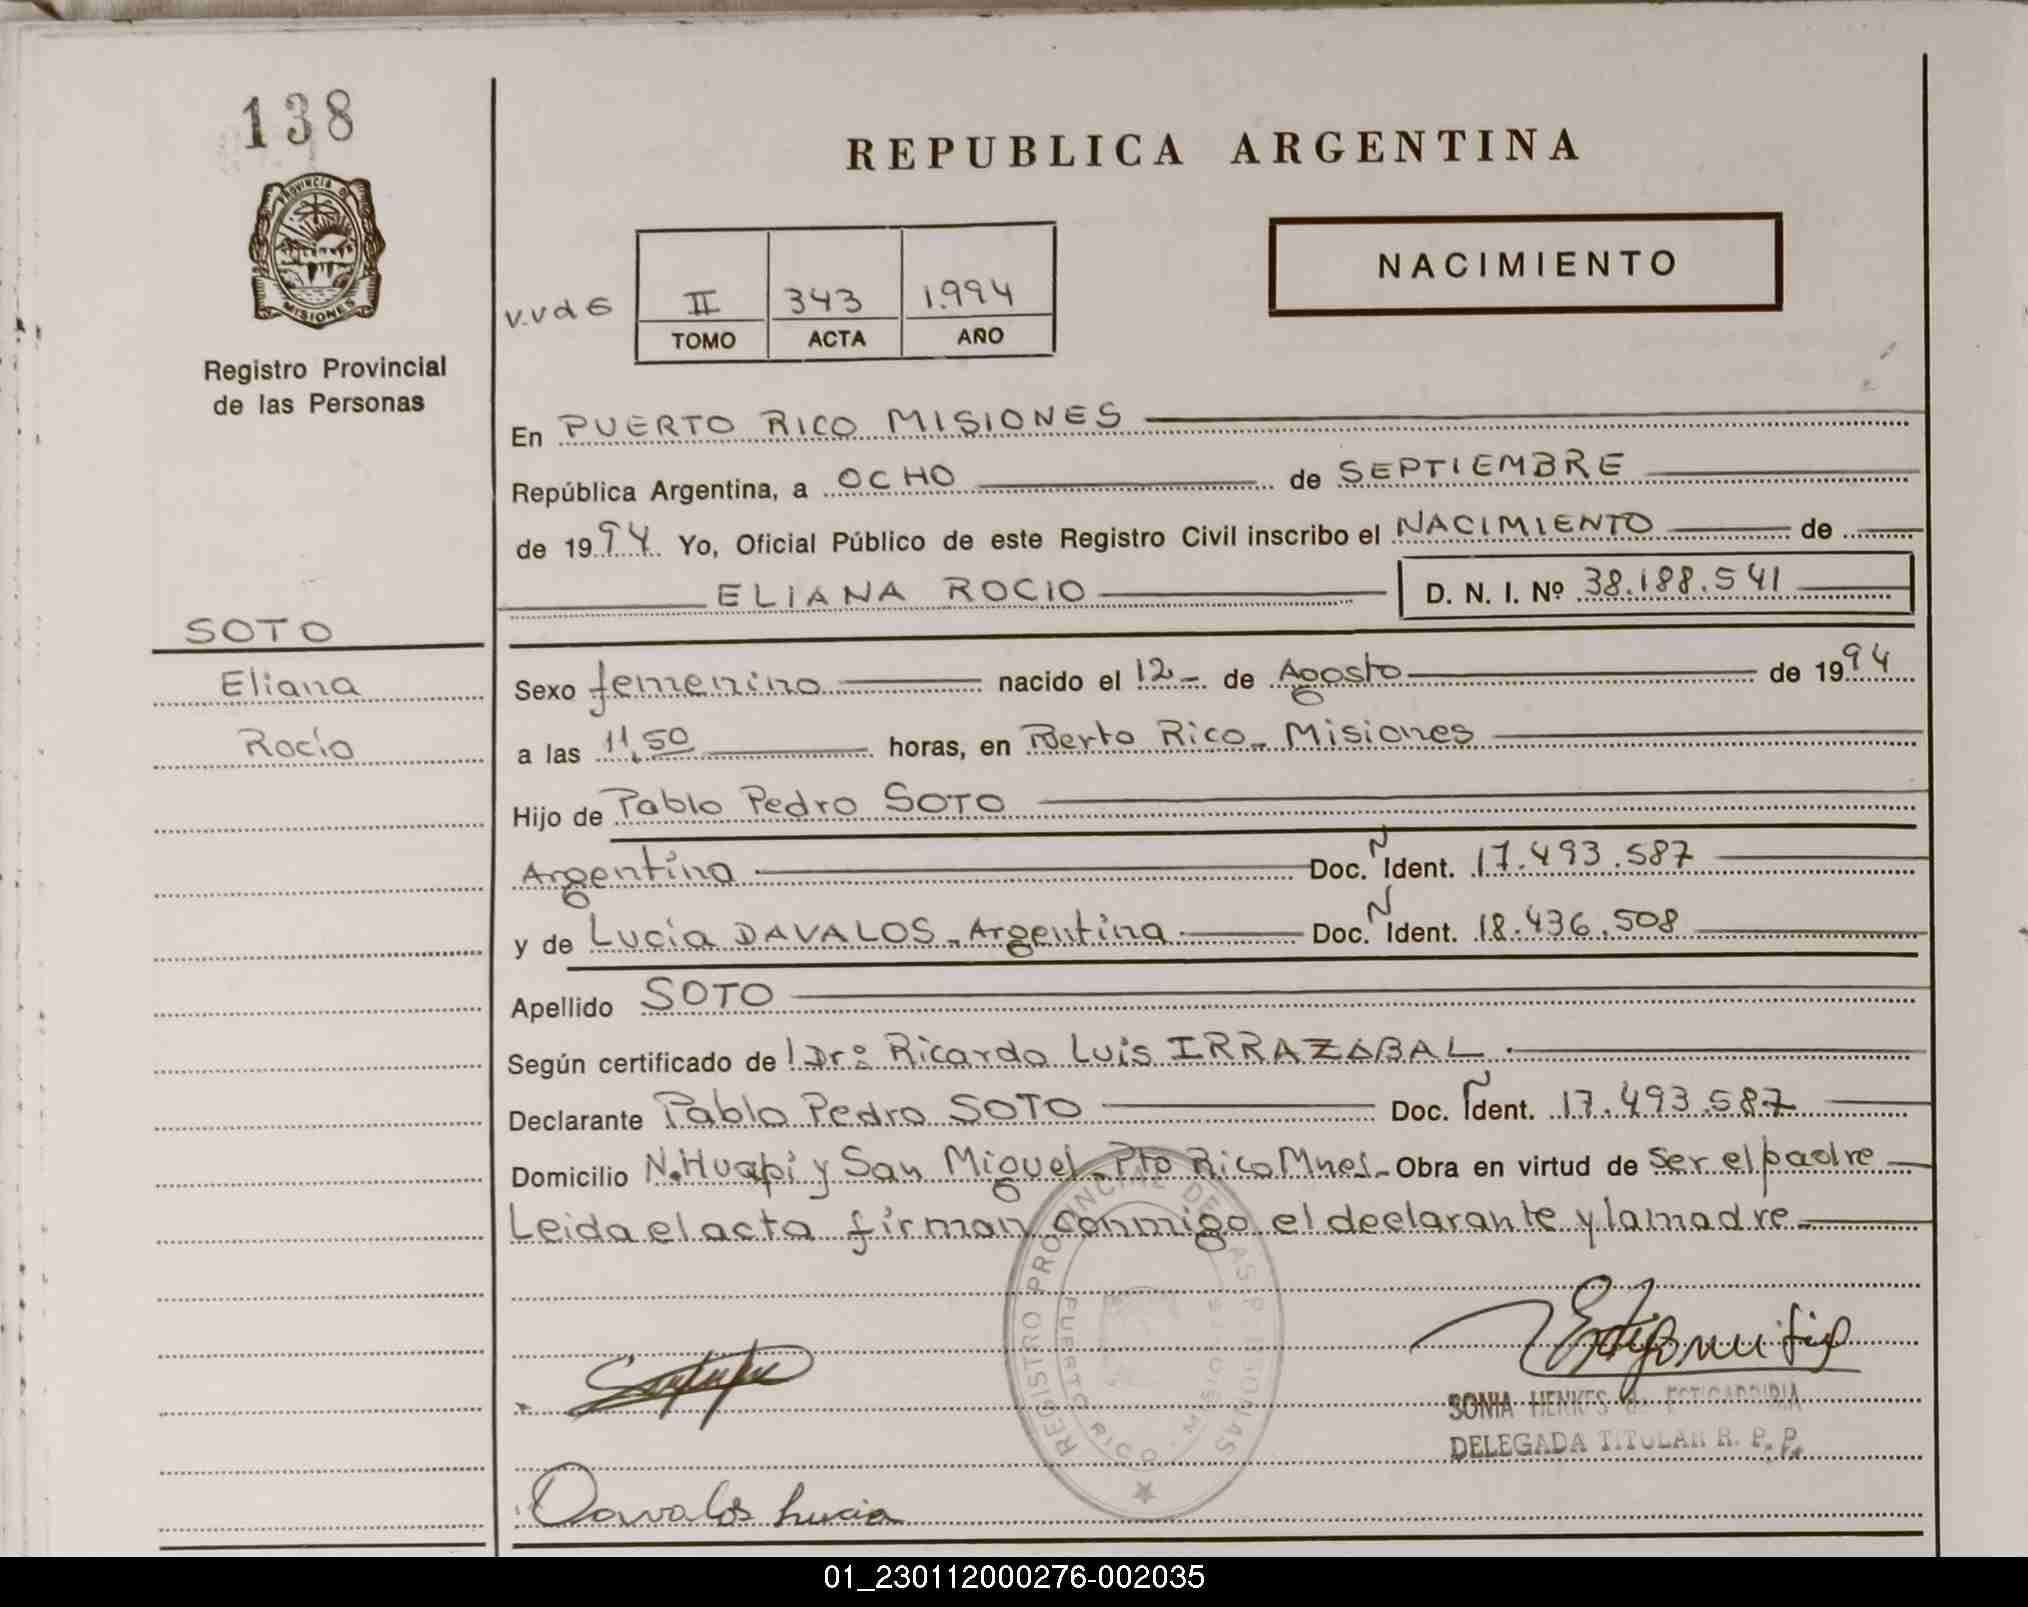 138
PROVINCIA DE
MISIONES
Registro Provincial
de las Personas
SOTO
Eliana
Rocío
REPUBLICA ARGENTINA
NACIMIENTO
II 343 1.994
TOMO ACTA AÑO
En PUERTO RICO MISIONES
República Argentina, a OCHO de SEPTIEMBRE
de 1994 Yo, Oficial Público de este Registro Civil inscribo el NACIMIENTO de
ELIANA ROCIO D. N. I. Nº 38.188.541
Sexo femenino nacido el 12 de Agosto de 1994
a las 11,50 horas, en Puerto Rico - Misiones
Hijo de Pablo Pedro SOTO
Argentina Doc. N Ident. 17.493.587
y de Lucía DAVALOS - Argentina Doc. N Ident. 18.436.508
Apellido SOTO
Según certificado de Dr: Ricardo Luis IRRAZABAL
Declarante Pablo Pedro SOTO Doc. N Ident. 17.493.587
Domicilio N. Huapi y San Miguel - Pto Rico Mnes - Obra en virtud de Ser el padre
Leida el acta firman conmigo el declarante y la madre
REGISTRO PROVINCIAL DE LAS PERSONAS
PUERTO RICO - MISIONES
SONIA HENKES de
DELEGADA TITULAR R. P. P.
Davalos Lucia
01_230112000276-002035